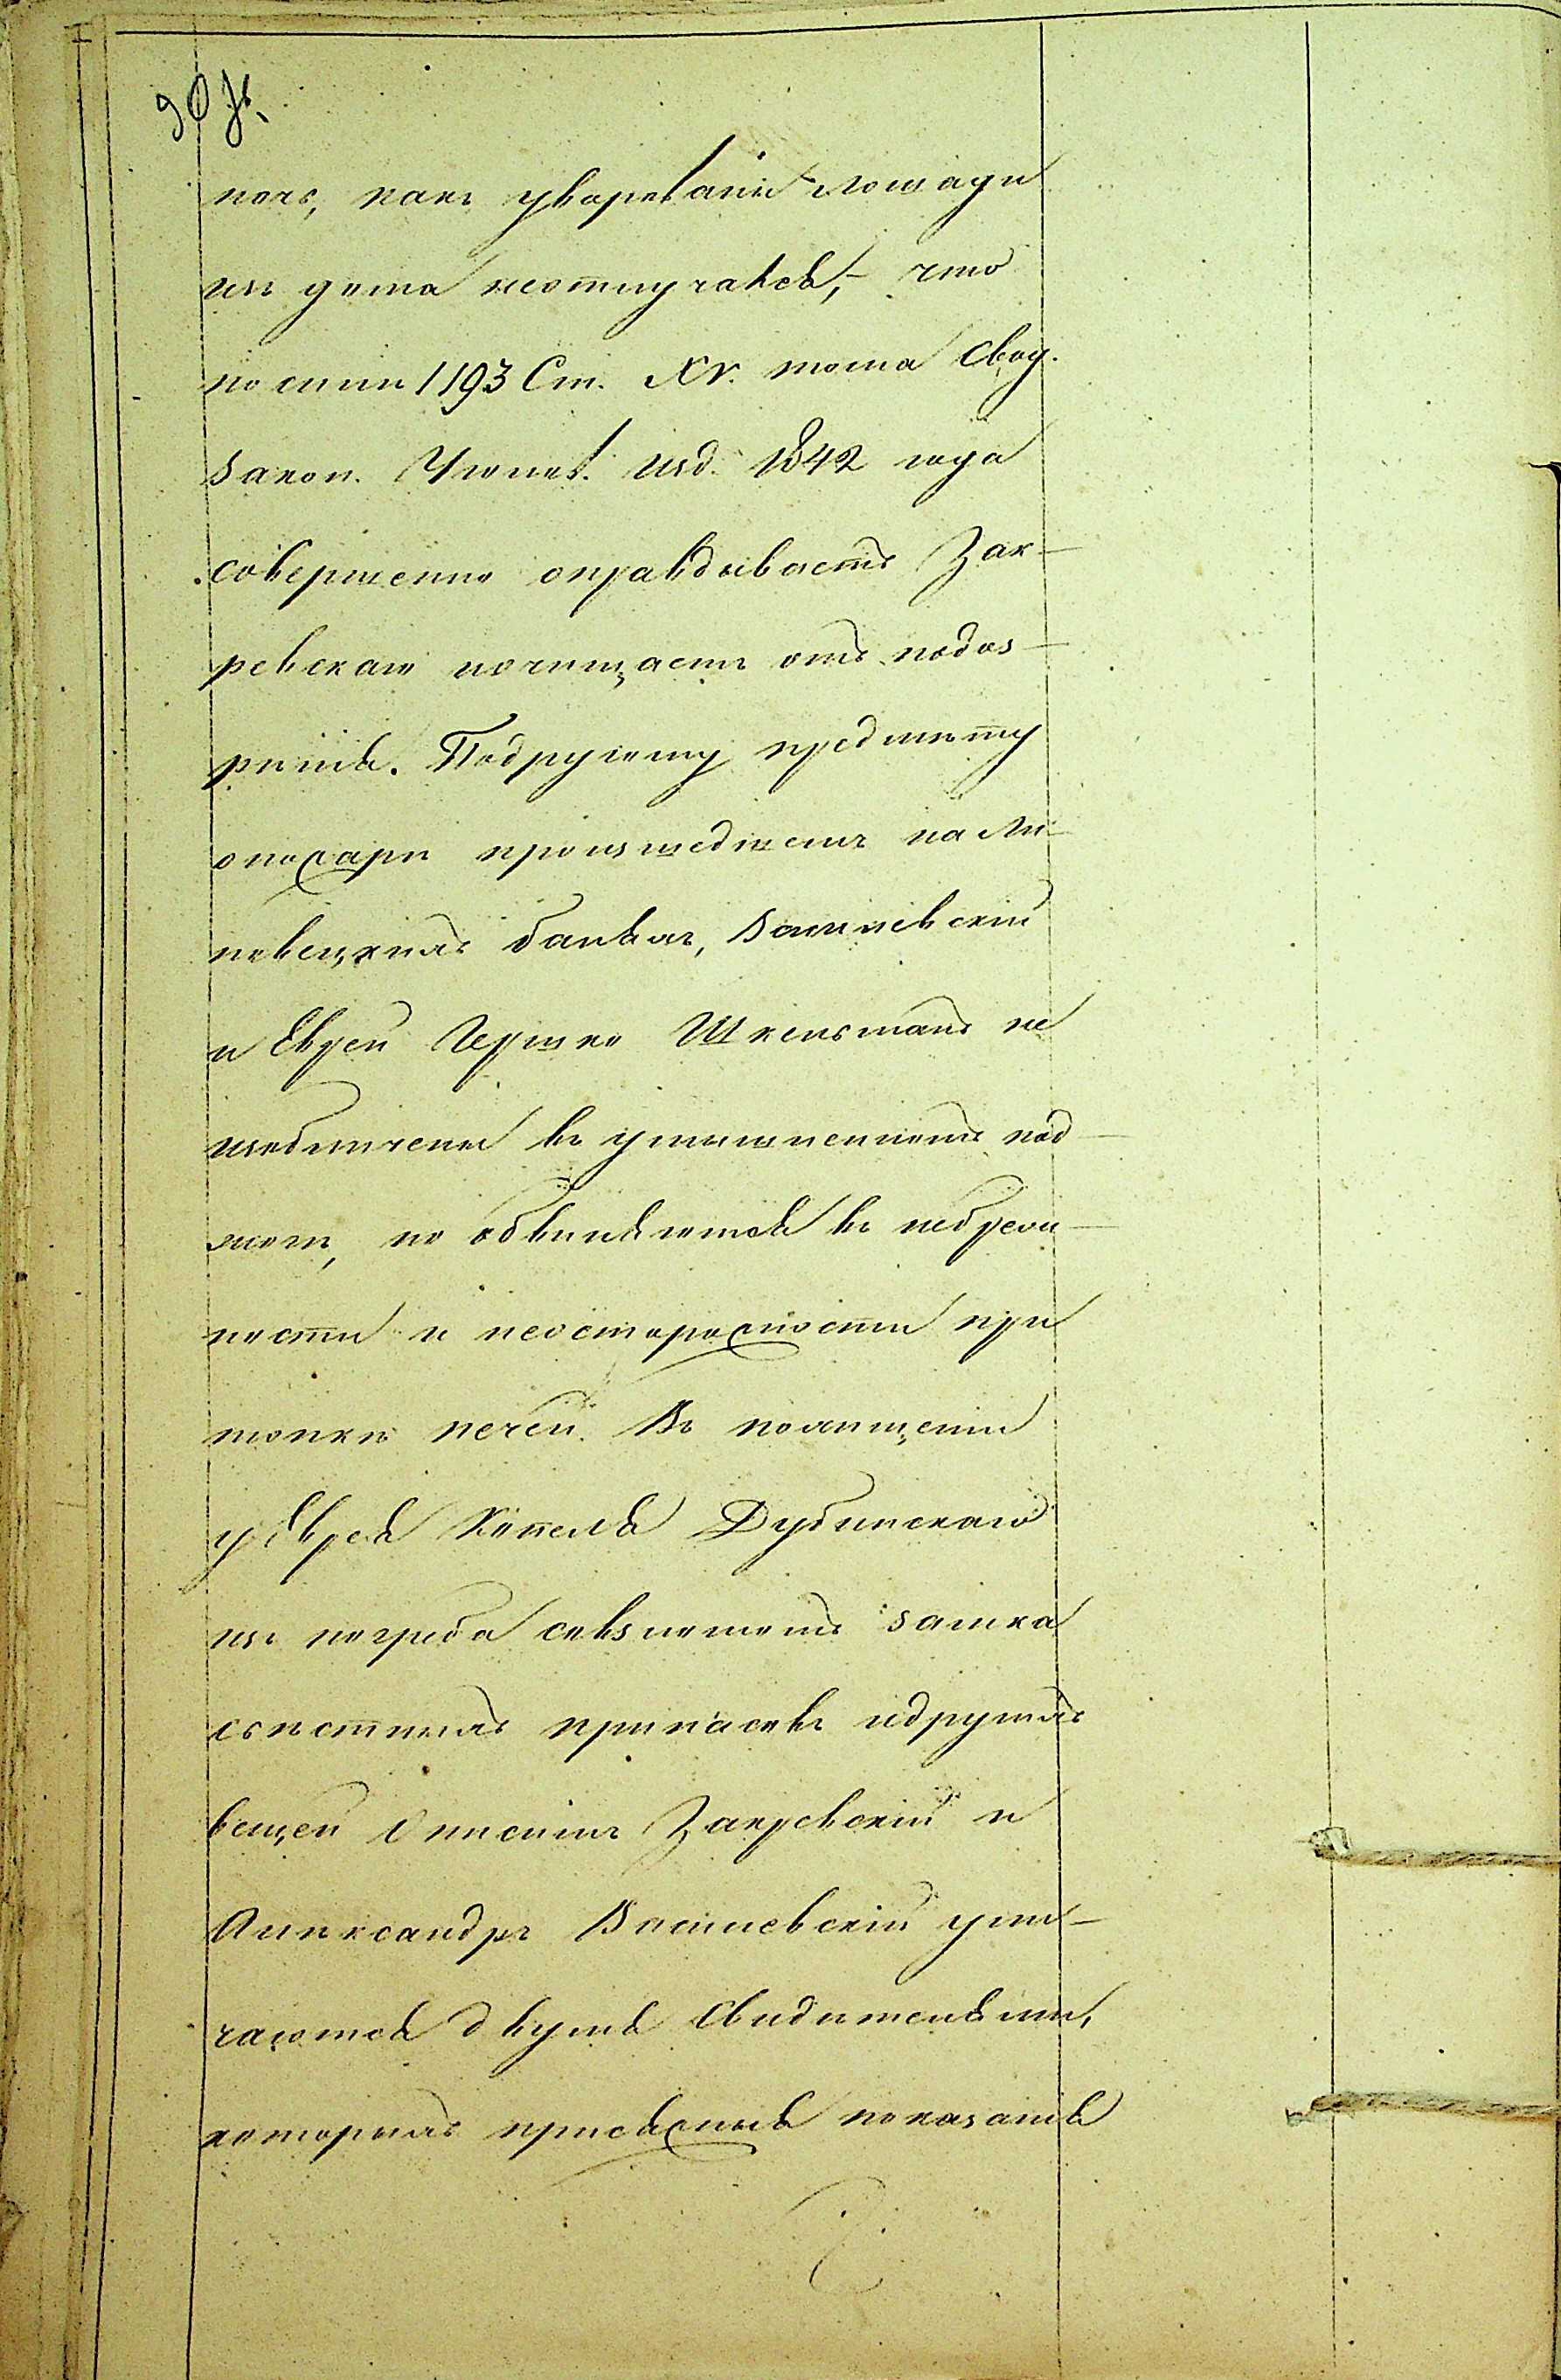 ночь, какъ уворованы лошади
изъ дома неотлучался, — что
по силѣ 1193 Ст. XV. тома Свод.
Закон. Уголов. изд. 1842 года
совершенно оправдываетъ Зак-
ревскаго и очищаетъ отъ подоз-
рѣнія. Подругому предмету
опожарѣ происшедшемъ на Ли-
повецкихъ банѣхъ, Василевскій
и Еврей Гершко Шкельманъ не
изобличены въ умышленномъ под-
жогѣ, но обвиняются въ небреж-
ности и неосторожности при
топкѣ печей. Въ похищеніи
у Еврея Копеля Дубинскаго
изъ погреба совзломомъ замка
съѣстныхъ припасовъ идругихъ
вещей Онисимъ Закревскій и
Александръ Василевскій ули-
чаются двумя Свидѣтелями,
которыхъ присяжныя показанія